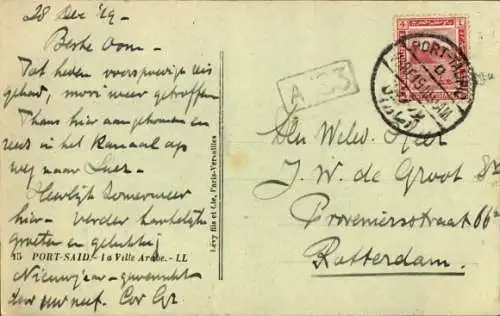 28 Dec '19 -
Beste Oom -
Tot heden voorspoedige reis
gehad, mooi weer getroffen
Thans hier aangekomen en
reeds in het Kanaal op
weg naar Suez -
Heerlijk zomerweer
hier - Verder hartelijke
groeten en gelukkig
15 PORT-SAID. - La Ville Arabe. - LL
Nieuwjaar - gewenscht
door uw neef. Cor
Lévy fils et Cie, Paris-Versailles
A 33
PORT-TAUFIQ
Den Welew. Heer
J. W. de Groot
Proveniersstraat 66
Rotterdam.